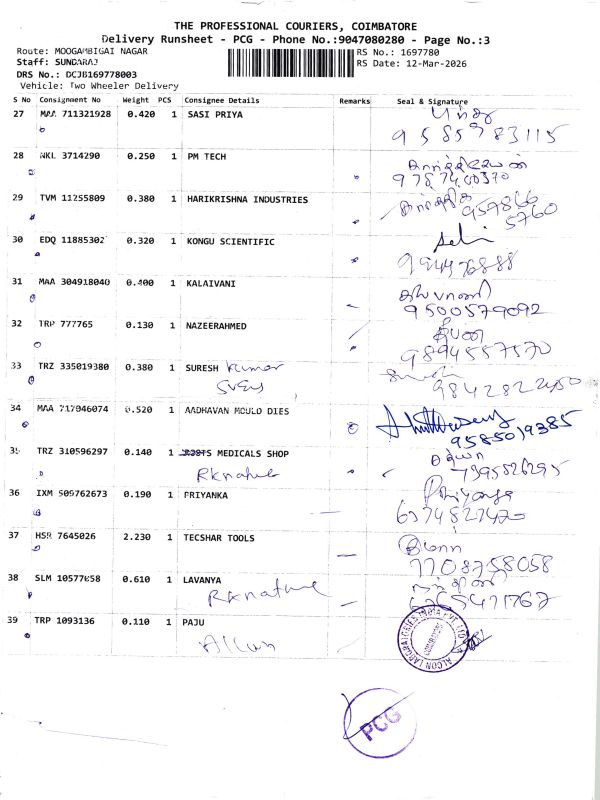 THE PROFESSIONAL COURIERS, COIMBATORE
Delivery Runsheet - PCG - Phone No.:9047080280 - Page No.:3
Route: MOOGAMBIGAI NAGAR RS No.: 1697780
Staff: SUNDARAJ RS Date: 12-Mar-2026
DRS No.: DCJB169778003
Vehicle: Two Wheeler Delivery
S No Consignment No Weight PCS Consignee Details Remarks Seal & Signature
27 MAA 711321928 0.420 1 SASI PRIYA
9585983115
28 NKL 3714290 0.250 1 PM TECH
9787400370
29 TVM 11255809 0.380 1 HARIKRISHNA INDUSTRIES
959866
5760
30 EDQ 11885302 0.320 1 KONGU SCIENTIFIC
9944976888
31 MAA 304918040 0.400 1 KALAIVANI
கலைவாணி
9500579092
32 TRP 777765 0.130 1 NAZEERAHMED
தீபன்
9894557570
33 TRZ 335019380 0.380 1 SURESH Kumar
9842822450
34 MAA 717046074 0.520 1 AADHAVAN MOULD DIES
9585019385
35 TRZ 310596297 0.140 1 MEDICALS SHOP
RKnature 7395826295
36 IXM 509762673 0.190 1 PRIYANKA
Priyanga
6374827420
37 HSR 7645026 2.230 1 TECSHAR TOOLS
7708758058
38 SLM 10577058 0.610 1 LAVANYA
RKnature
39 TRP 1093136 0.110 1 PAJU
ALCON LABORATORIES INDIA PVT LTD
COIMBATORE
PCG